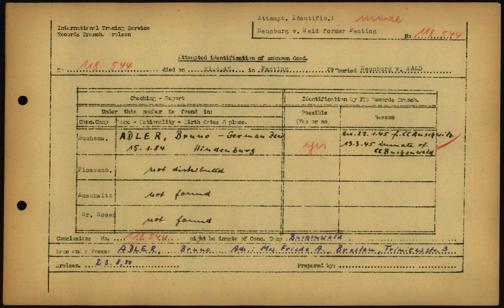 International Tracing Service
Records Branch. Arolsen
Attempt. Identific.: made
Neunburg v. Wald former Penting
No 118 544
Attempted identification of unknown dead.
118 544 died on in Penting reburied Neunburg v. WALD
Checking - Report
Identification by ITS Records Branch.
Under this number is found in:
Conc.Camp Name - Nationality - Birth dates & place.
Possible (Yes or no)
Reason
Buchenw. ADLER, Bruno - German Jew
15.1.84 Hindenburg
yes
22.1.45 f. CC Auschwitz
13.3.45 inmate of CC Buchenwald
Flossenb. not distributed
Auschwitz not found
Gr. Rosen not found
Conclusion: No. 118 544 might be inmate of Conc. Camp Buchenwald
ADLER, Bruno Frieda A., Breslau, 3
Arolsen, 23.8.50 Prepared by: